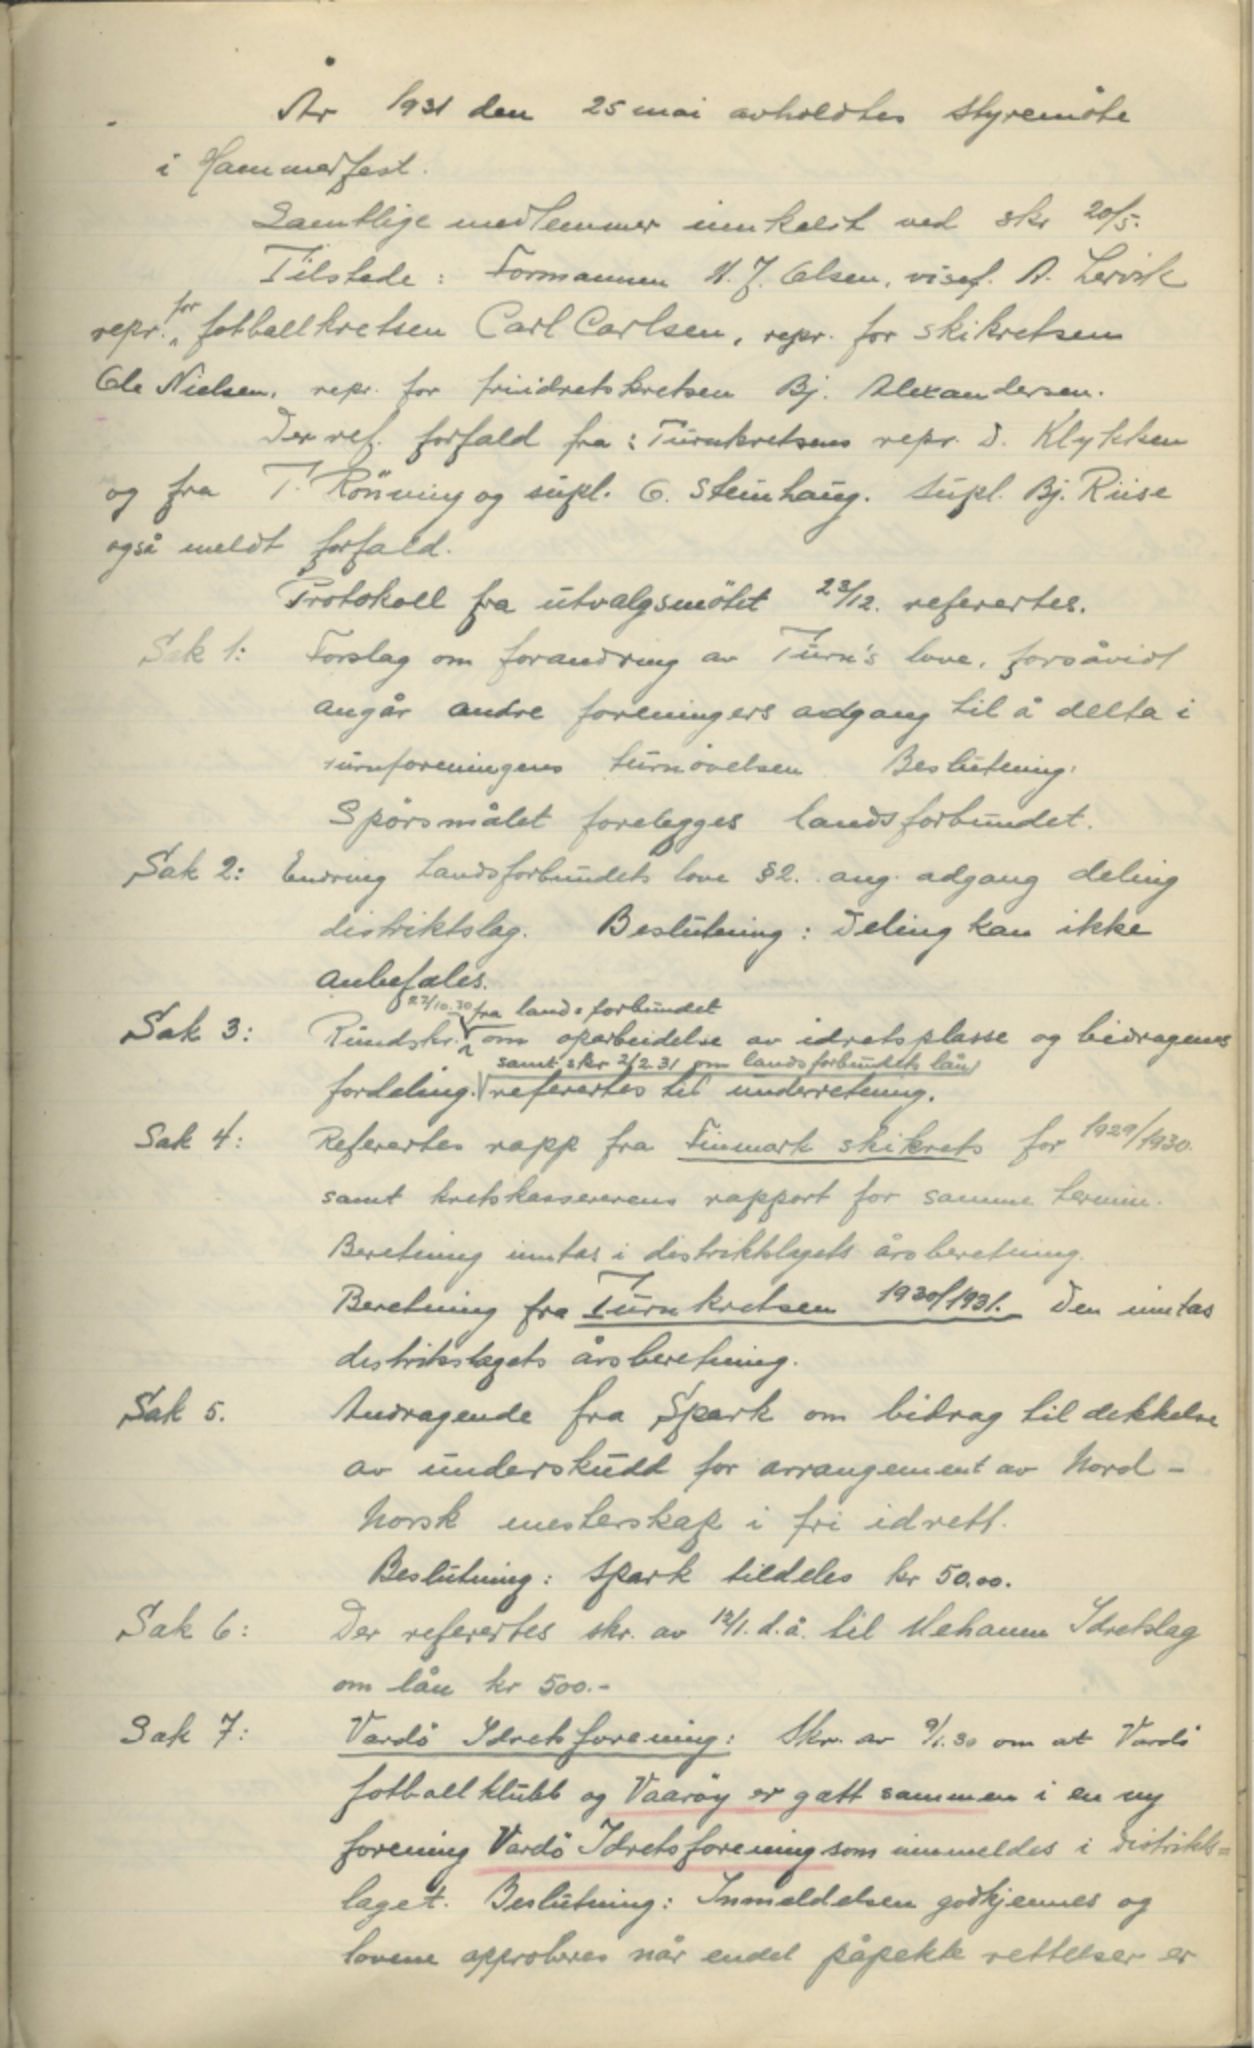 År 1931 den 25 mai avholdtes styremöte
i Hammerfest.
Samtlige medlemmer innkaldt ved skr 20/5.
Tilstede: Formannen H. J. Olsen, visef. A. Lervik
repr. for fotballkretsen Carl Carlsen, repr. for skikretsen
Ole Nielsen, repr. for friidretskretsen Bj. Alexandersen.
Der ref. forfald fra: Turnkretsens repr. D. Klykken
og fra T. Rönning og supl. O. Steinhaug. Supl. Bj. Riise
også meldt forfald.
Protokoll fra utvalgsmötet 23/12. refertes.
Sak 1: Forslag om forandring av Turn's love, forsåvidt
angår andre foreningers adgang til å delta i
turnforeningens turnövelsen Beslutning:
Spörsmålet forelegges landsforbundet.
Sak 2: Endring Landsforbundets love §2. ang. adgang deling
distriktslag. Beslutning: Deling kan ikke
anbefales.
27/10.30 fra landsforbundet
Sak 3: Rundskr. om oparbeidelse av idretsplasse og bidragenes
samt skr 2/2.31 om landsforbundets lån
fordeling. refertes til underretning.
Sak 4: Refertes rapp fra Finmark skikrets for 1929/1930.
samt kretskassererens rapport for samme termin.
Beretning inntas i distriktslagets årsberetning.
Beretning fra Turnkretsen 1930/1931. Den inntas
distriktslagets årsberetning.
Sak 5. Andragende fra Spark om bidrag til dekkelse
av underskudd for arrangement av Nord-
Norsk mesterskap i fri idrett.
Beslutning: Spark tildeles kr 50.00.
Sak 6: Der refertes skr. av 12/1. d.å. til Mehamn Idretslag
om lån kr 500.-
Sak 7: Vardö Idretsforening: Skr. av 9/1.30 om at Vardö
fotballklubb og Vaaröy er gått sammen i en ny
forening Vardö Idretsforening som innmeldes i distrikts=
laget. Beslutning: Innmeldelsen godkjennes og
lovene approberes når endel påpekte rettelser er